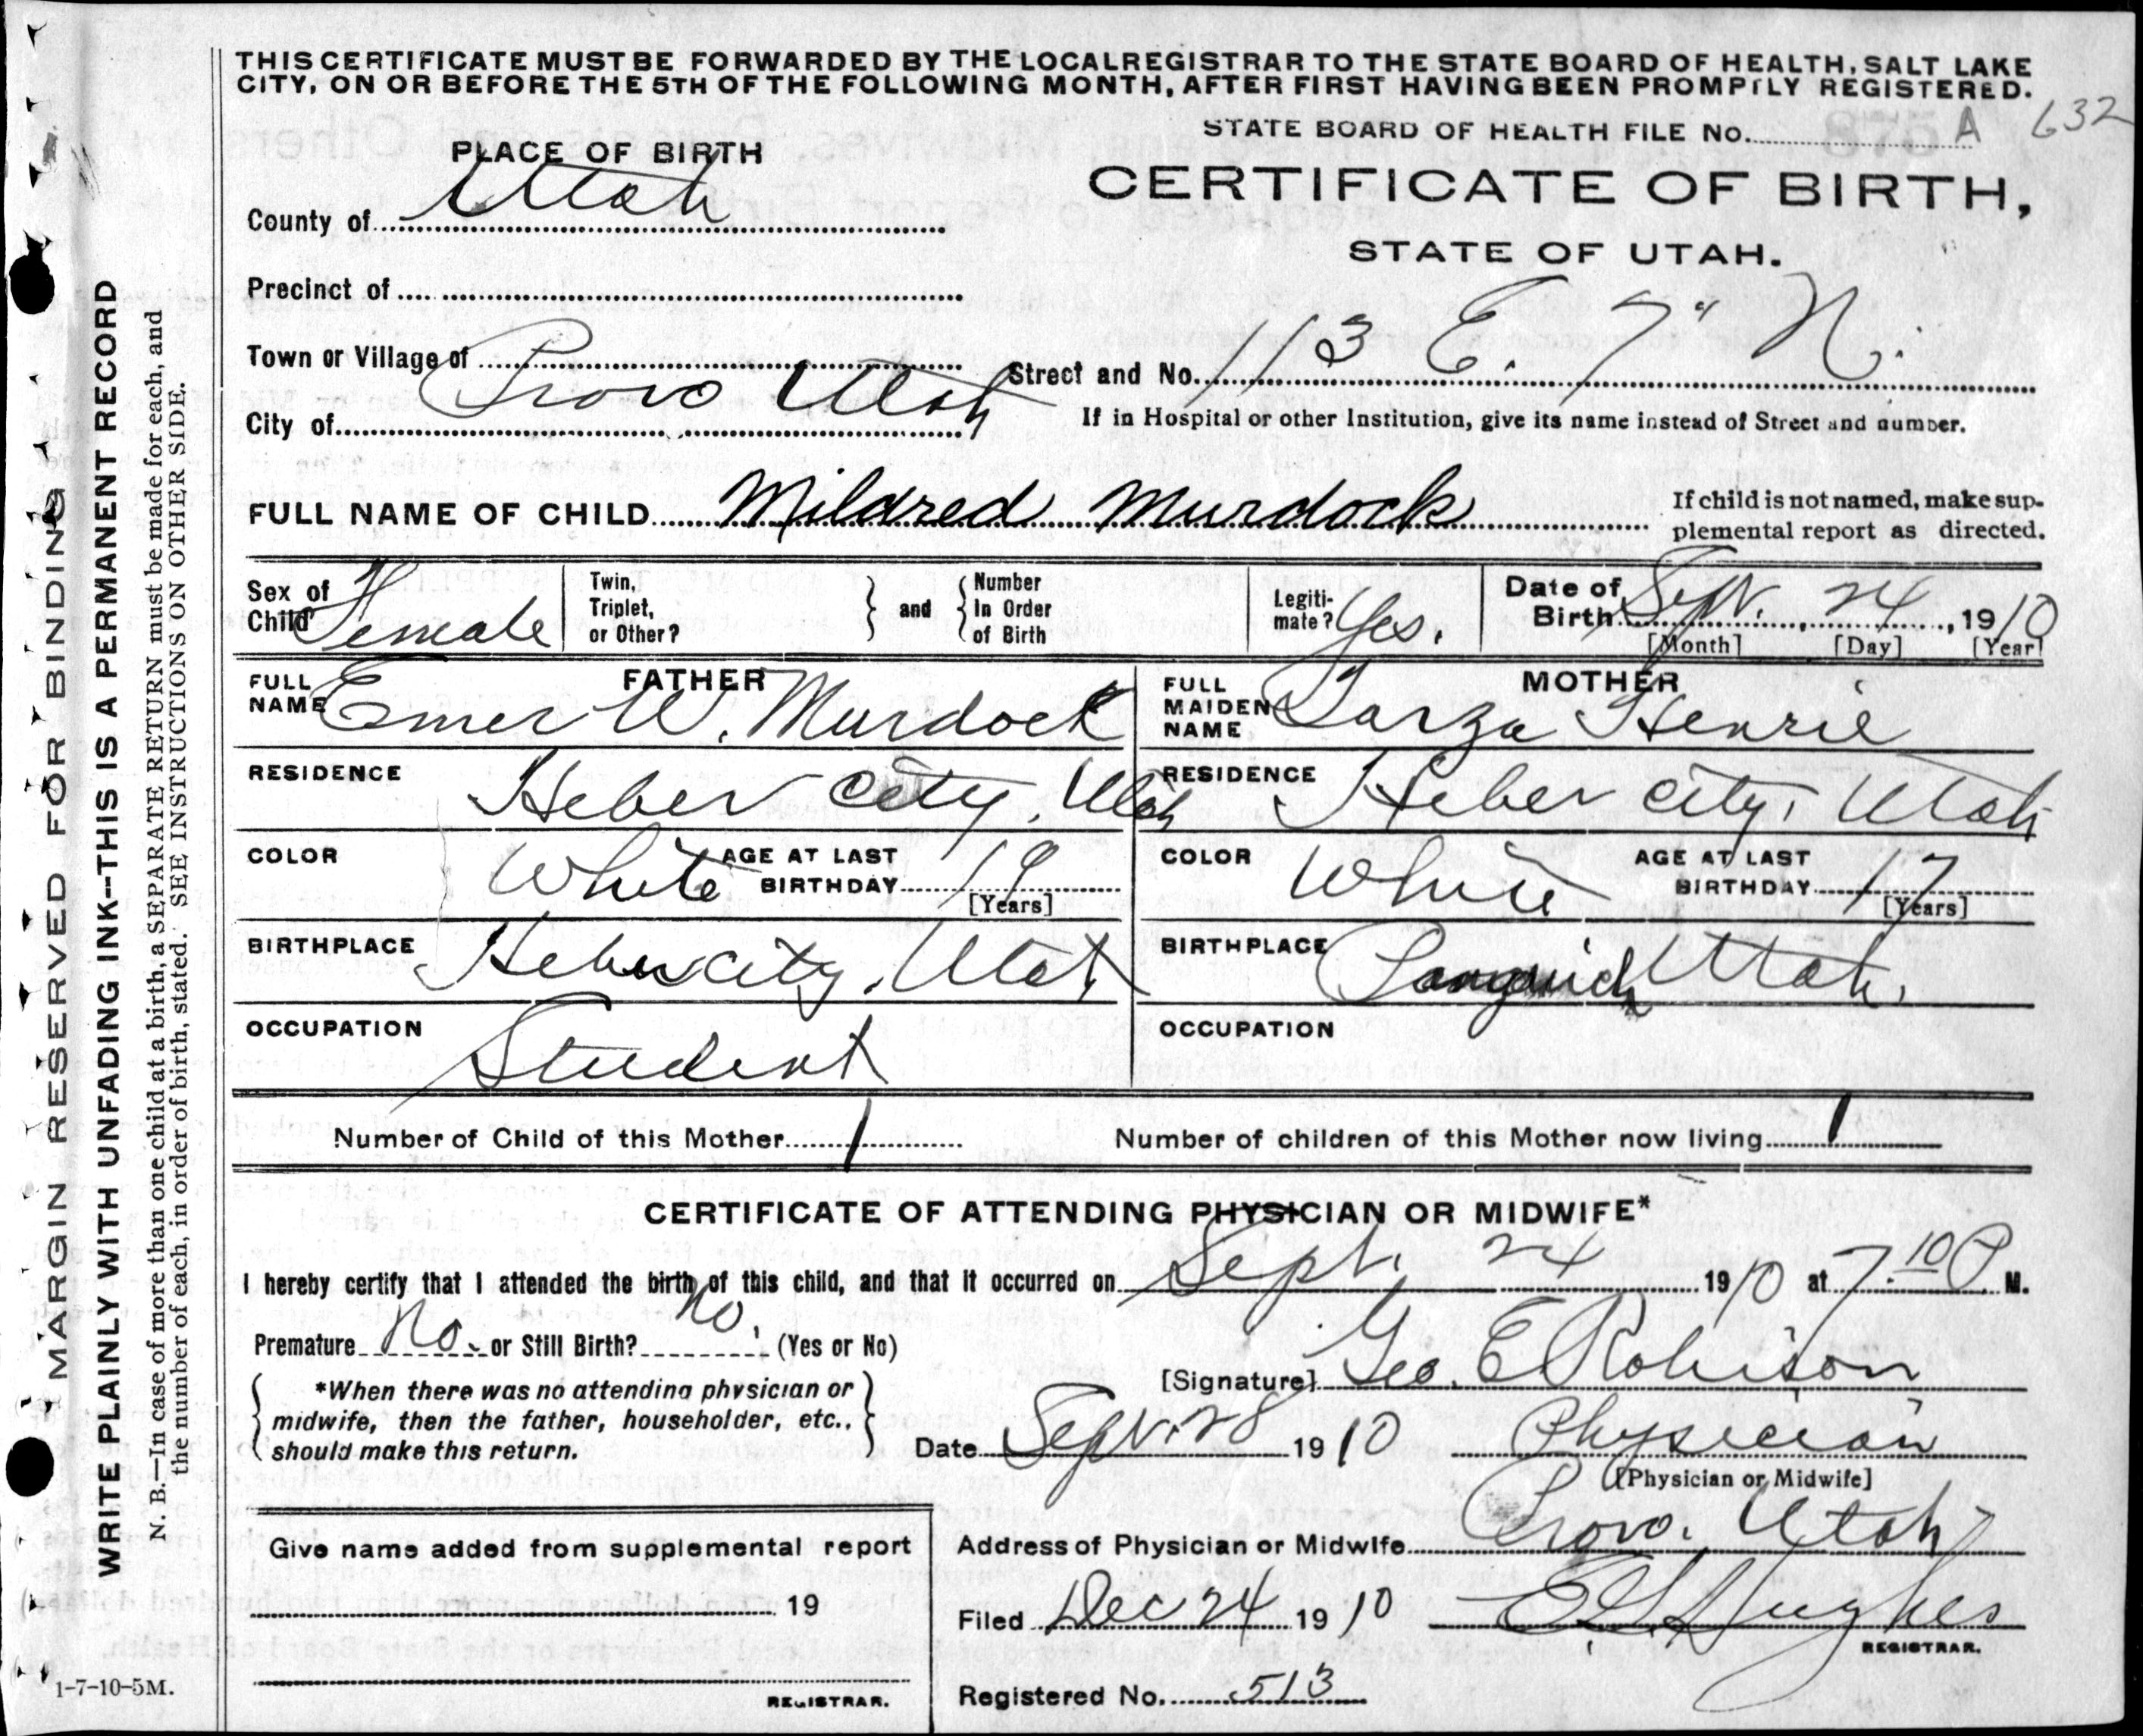 THIS CERTIFICATE MUST BE FORWARDED BY THE LOCAL REGISTRAR TO THE STATE BOARD OF HEALTH, SALT LAKE
CITY, ON OR BEFORE THE 5TH OF THE FOLLOWING MONTH, AFTER FIRST HAVING BEEN PROMPTLY REGISTERED.
STATE BOARD OF HEALTH FILE NO. A 632
PLACE OF BIRTH
CERTIFICATE OF BIRTH,
County of Utah
STATE OF UTAH.
Precinct of
Town or Village of
Street and No. 113 E. 7" N.
City of Provo Utah
If in Hospital or other Institution, give its name instead of Street and number.
FULL NAME OF CHILD Mildred Murdock
If child is not named, make sup-
plemental report as directed.
Sex of Child Female
Twin, Triplet, or Other? and Number In Order of Birth
Legiti-mate? Yes.
Date of Birth Sept. 24, 1910
[Month] [Day] [Year]
FATHER
FULL NAME Emer W. Murdock
MOTHER
FULL MAIDEN NAME Tarza Henrie
RESIDENCE Heber City, Utah
RESIDENCE Heber City, Utah
COLOR White AGE AT LAST BIRTHDAY 19 [Years]
COLOR White AGE AT LAST BIRTHDAY 17 [Years]
BIRTHPLACE Heber City, Utah
BIRTHPLACE Panguich Utah.
OCCUPATION Student
OCCUPATION
Number of Child of this Mother 1
Number of children of this Mother now living 1
CERTIFICATE OF ATTENDING PHYSICIAN OR MIDWIFE*
I hereby certify that I attended the birth of this child, and that it occurred on Sept. 24 1910 at 7:10 P. M.
Premature No. or Still Birth? No. (Yes or No)
*When there was no attending physician or
midwife, then the father, householder, etc.,
should make this return.
[Signature] Geo. E Robison
Date Sept. 28 1910 Physician
[Physician or Midwife]
Give name added from supplemental report
19
REGISTRAR.
Address of Physician or Midwife Provo. Utah
Filed Dec 24 1910 E G Hughes
REGISTRAR.
Registered No. 513
MARGIN RESERVED FOR BINDING
WRITE PLAINLY WITH UNFADING INK--THIS IS A PERMANENT RECORD
N. B.—In case of more than one child at a birth, a SEPARATE RETURN must be made for each, and
the number of each, in order of birth, stated. SEE INSTRUCTIONS ON OTHER SIDE.
1-7-10-5M.